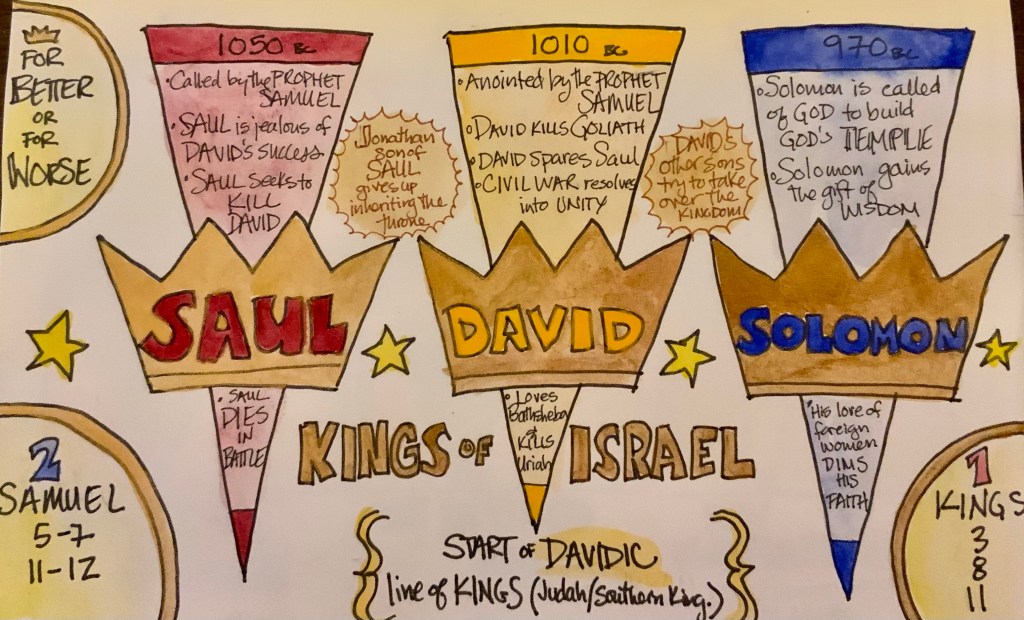 FOR
BETTER
OR
FOR
WORSE
1050 BC
•Called by the PROPHET
SAMUEL
•SAUL is jealous of
DAVID's success
•SAUL SEEKS to
KILL
DAVID
Jonathan
son of
SAUL
gives up
inheriting the
throne
1010 BC
•Anointed by the PROPHET
SAMUEL
•DAVID KILLS GOLIATH
•DAVID SPARES Saul
•CIVIL WAR resolves
into UNITY
DAVID'S
other sons
try to take
over the
KINGDOM
970 BC
•Solomon is called
of GOD to build
GOD'S TEMPLE
•Solomon gains
the gift of
WISDOM
SAUL
DAVID
SOLOMON
•SAUL
DIES
IN
BATTLE
•Loves
Bathsheba
&
Kills
Uriah
•His love of
foreign
women
DIMS
HIS
FAITH
KINGS OF ISRAEL
2
SAMUEL
5-7
11-12
START OF DAVIDIC
line of KINGS (Judah/Southern King.)
1
KINGS
3
8
11